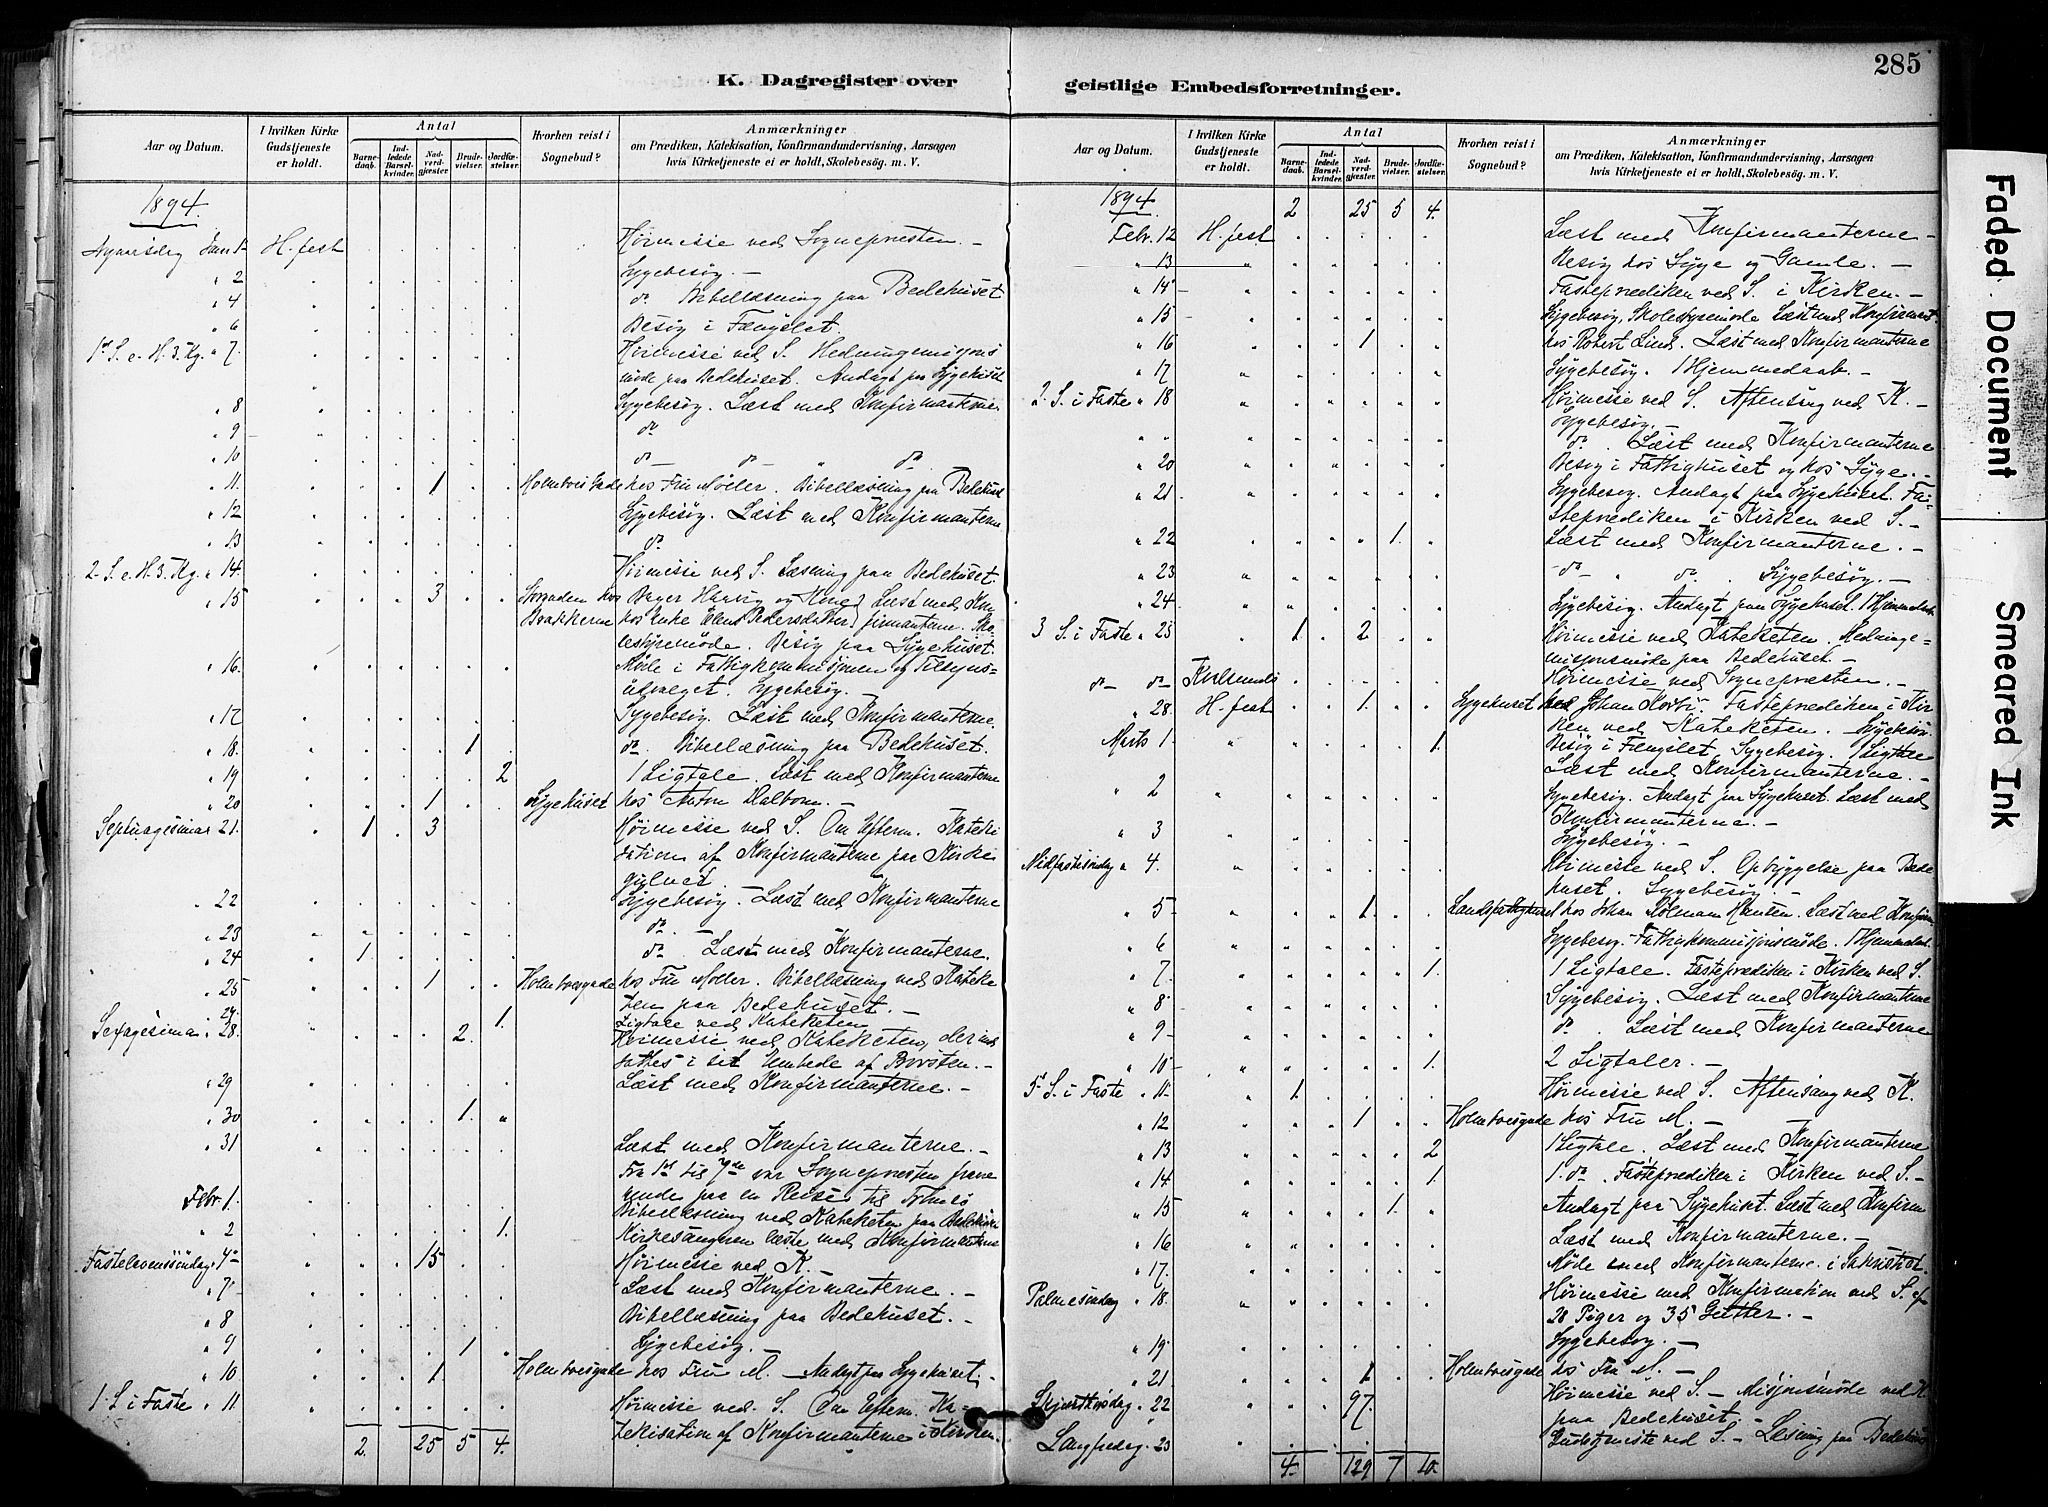 285
K. Dagregister over
geistlige Embedsforretninger.
Aar og Datum.
I hvilken Kirke Gudstjeneste er holdt.
Antal
Barnedaab.
Indledede Barselkvinder.
Nadverdgjæster.
Brudevielser.
Jordfæstelser.
Hvorhen reist i Sognebud?
Anmærkninger
om Prædiken, Katekisation, Konfirmandundervisning, Aarsagen
hvis Kirketjeneste ei er holdt, Skolebesøg. m. V.
1894.
Nyaarsdag Jan. 1 H.fest Høimesse ved Sognepræsten. -
" 2 Sygebesøg. -
" 4 do Bibellæsning paa Bedehuset
" 6 Besøg i Fængslet.
1ste S. e. H. 3. Kg. " 7. Høimesse ved S. Hedningemisjons
møde paa Bedehuset. Andagt paa Sygehuset
" 8 Sygebesøg. Læst med Konfirmanterne
" 9 do
" 10 do do do
" 11. 1 hos Fru Møller. Bibellæsning paa Bedehuset
" 12 Sygebesøg. Læst med Konfirmanterne
" 13 do
2. S. e. H. 3. Kg. " 14. Høimesse ved S. Læsning paa Bedehuset.
" 15 3 Storgaden hos Bager og Kone) Læst med Kon
Bakkerne hos Enke Pedersdatter) firmantern. Sko-
lestyremøde. Besøg paa Sygehuset.
" 16. Møde i Fattigkommisjonen og Tilsyns-
udvalget. Sygebesøg. -
" 17 Sygebesøg. Læst med Konfirmanterne.
" 18. 1. do. Bibellæsning paa Bedehuset.
" 19 2 1 Ligtale. Læst med Konfirmanterne
" 20 1 Sygehuset hos Anton Dalbom. -
Septuagesima " 21. 1 3 Høimesse ved S. Om Efterm. Kateki
sation af Konfirmanterne paa Kirke
gulvet.
" 22 Sygebesøg. - Læst med Konfirmanterne
" 23 do. -
" 24 1. do Læst med Konfirmanterne.
" 25 1 Holmboesgade hos Fru Møller. Bibellæsning ved Kateke
ten paa Bedehuset. -
27. 1. Ligtale ved Kateketen
Sexagesima " 28. 2. Høimesse ved Kateketen, der ind
sattes i sit Embede af Provsten. -
" 29 Læst med Konfirmanterne. -
" 30 1.
" 31 Læst med Konfirmanterne. -
Fra 1ste til 7de var Sognepræsten fravæ
rende paa en Reise til Tromsø
Febr. 1. Bibellæsning ved Kateketen paa Bedehuset
" 2 1. Kirkesangeren læste med Konfirmanterne
Fastelavenssøndag " 4 15 Høimesse ved K. -
" 7 Læst med Konfirmanterne. -
" 8 Bibellæsning paa Bedehuset. -
" 9 1 Sygebesøg. -
" 10 1. Holmboesgade hos Fru M. - Andagt paa Sygehuset. -
1. S. i Faste " 11. Høimesse ved S. Om Efterm. Ka-
tekisation af Konfirmanterne i Kirken.
2. 25 5 4.
Aar og Datum.
I hvilken Kirke Gudstjeneste er holdt.
Antal
Barnedaab.
Indledede Barselkvinder.
Nadverdgjæster.
Brudevielser.
Jordfæstelser.
Hvorhen reist i Sognebud?
Anmærkninger
om Prædiken, Katekisation, Konfirmandundervisning, Aarsagen
hvis Kirketjeneste ei er holdt, Skolebesøg. m. V.
1894. 2 25 5 4.
Febr. 12 H.fest Læst med Konfirmanterne -
" 13 Besøg hos Syge og Gamle. -
" 14 Fasteprædiken ved S. i Kirken. -
" 15 Sygebesøg, Skolestyremøde Læst med Konfirmant.
" 16 1 hos Robert Lind. Læst med Konfirmanterne
" 17 Sygebesøg. 1 Hjemmedaab. -
2. S. i Faste " 18 Høimesse ved S. Aftensang ved K. -
Sygebesøg. -
" " do. Læst med Konfirmanterne
" 20 Besøg i Fattighuset og hos Syge. -
" 21 Sygebesøg. Andagt paa Sygehuset. Fa-
steprædiken i Kirken ved S. -
" 22 1. Læst med Konfirmanterne. -
" 23 do do Sygebesøg. -
" 24 Sygebesøg. Andagt paa Sygehuset. 1 Hjemmedaab
3 S. i Faste " 25 1. 2 Høimesse ved Kateketen. Hedninge-
misjonsmøde paa Bedehuset. -
do do Høimesse ved Sognepræsten. -
" 28. H.fest 1. Sygehuset hos Johan Fasteprædiken i Kir
ken ved Kateketen. - Sygebesøg.
Marts 1. 1. Besøg i Fængslet. Sygebesøg. 1 Ligtale
Læst med Konfirmanterne. -
" 2 Sygebesøg. Andagt paa Sygehuset. Læst med
Konfirmanterne. -
" 3 Sygebesøg. -
Midfastesøndag " 4. Høimesse ved S. Opbyggelse paa Bede
huset. Sygebesøg. -
" 5 1. hos Johan Hansen. Læst med Konfirm.
" 6 Sygebesøg. Fattigkommisjonsmøde. 1 Hjemmedaab.
" 7. 1. 1 Ligtale. Fasteprædiken i Kirken ved S.
" 8 Sygebesøg. Læst med Konfirmanterne
" 9 do. Læst med Konfirmanterne
" 10 1. 2 Ligtaler. -
5. S. i Faste " 11 1. Høimesse ved S. Aftensang ved K.
" 12 1 Holmboesgade hos Fru M. -
" 13 2 1 Ligtale. Læst med Konfirmanterne
" 14 1. 1. do. Fasteprædiken i Kirken ved S. -
" 15 1. Andagt paa Sygehuset. Læst med Konfirm
" 16 Læst med Konfirmanterne. -
" 17. Møde med Konfirmanterne i Sakristiet.
Palmesøndag " 18. Høimesse med Konfirmation ved S. af
28 Piger og 35 Gutter. -
" 19 Sygebesøg. -
" 21 1 Holmboesgade hos Fru M. -
Skjærthorsdag " 22 97. Høimesse ved S. - Misjonsmøde ved K.
paa Bedehuset. -
Langfredag " 23 Gudstjeneste ved S. - Læsning paa Bedehuset
4. 129 7 10.
Faded Document
Smeared Ink